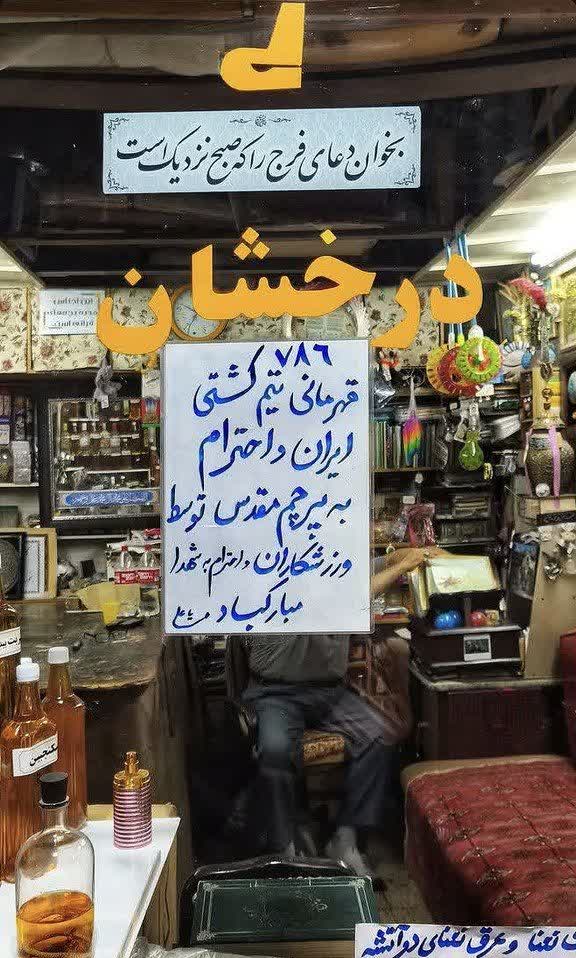 بخوان دعای فرج را که صبح نزدیک است
درخشان
۷۸۶
قهرمانی تیم کشتی
ایران و احترام
به پرچم مقدس توسط
ورزشکاران و احترام به شهدا
مبارکباد
سکنجبین
نعنا و عرق نعنای دو آتشه